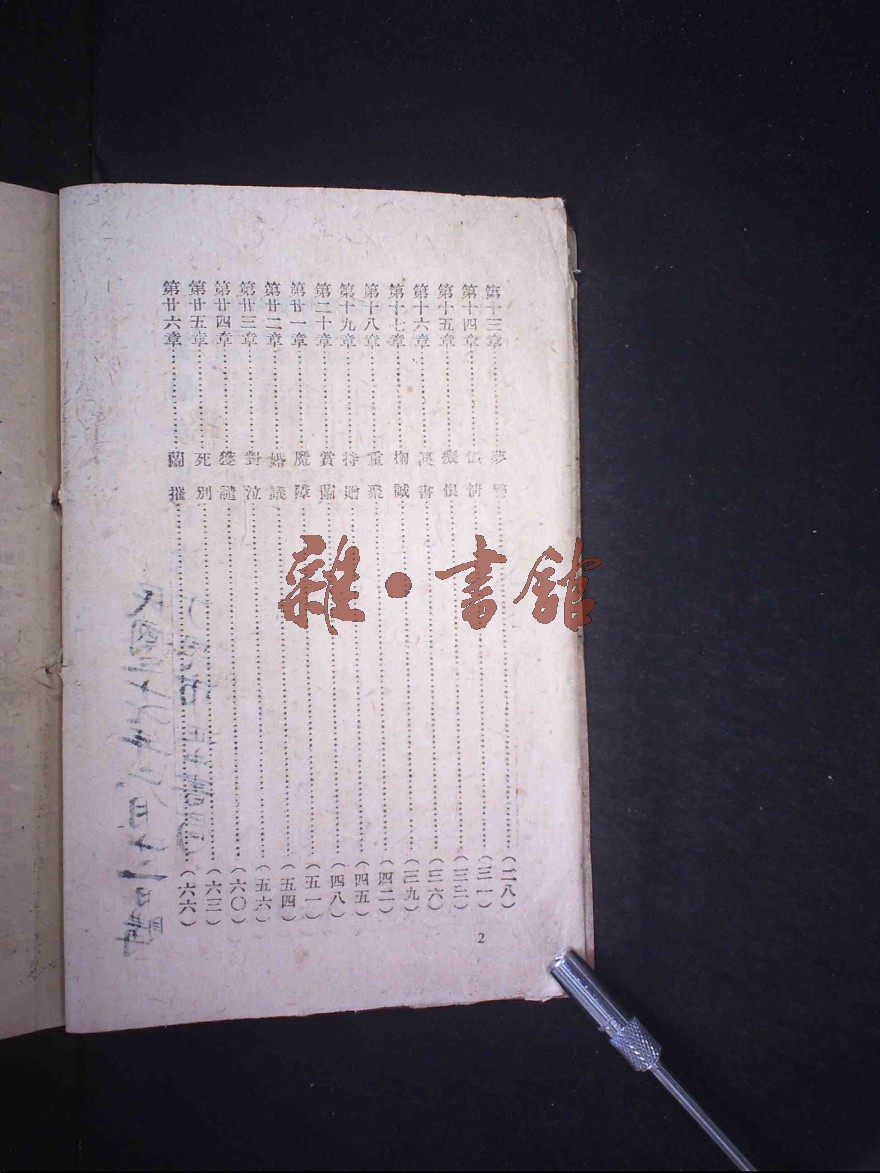 第十三章……夢警……(二八)
第十四章……情……(三一)
第十五章……癡恨……(三三)
第十六章……淚書……(三六)
第十七章……掬誠……(三九)
第十八章……重聚……(四二)
第十九章……持贈……(四五)
第二十章……賞蘭……(四八)
第廿一章……魔障……(五一)
第廿二章……婚議……(五四)
第廿三章……對泣……(五六)
第廿四章……獲譴……(六〇)
第廿五章……死別……(六三)
第廿六章……蘭摧……(六六)
2
雜·書館